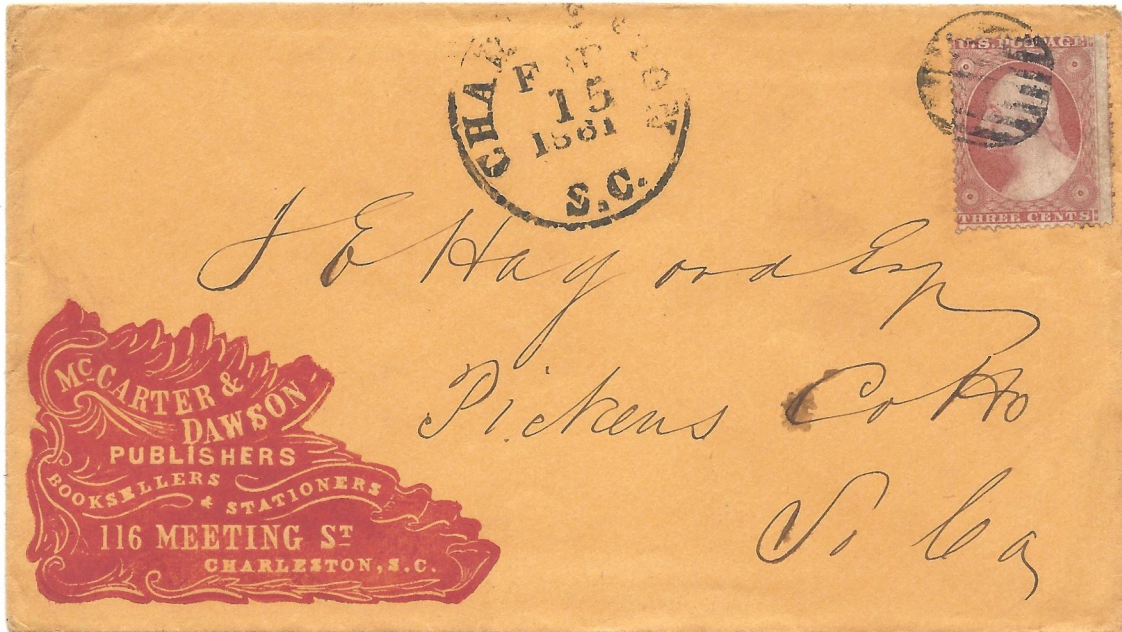 CHARLESTON
15
1861
S.C.
U.S. POSTAGE
THREE CENTS
J E Hagood Esq
Pickens Co Ho
So Ca
McCARTER &
DAWSON
PUBLISHERS
BOOKSELLERS
& STATIONERS
116 MEETING ST
CHARLESTON, S.C.